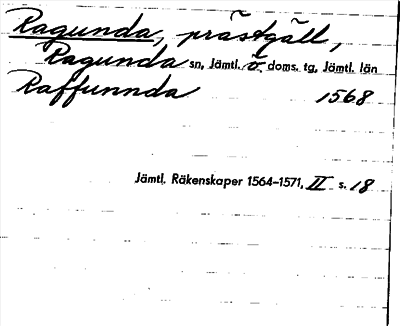 Ragunda, prästgäll,
Ragunda sn, Jämtl. ö. doms. tg, Jämtl. län
Raffunnda 1568
Jämtl. Räkenskaper 1564-1571, II s. 18